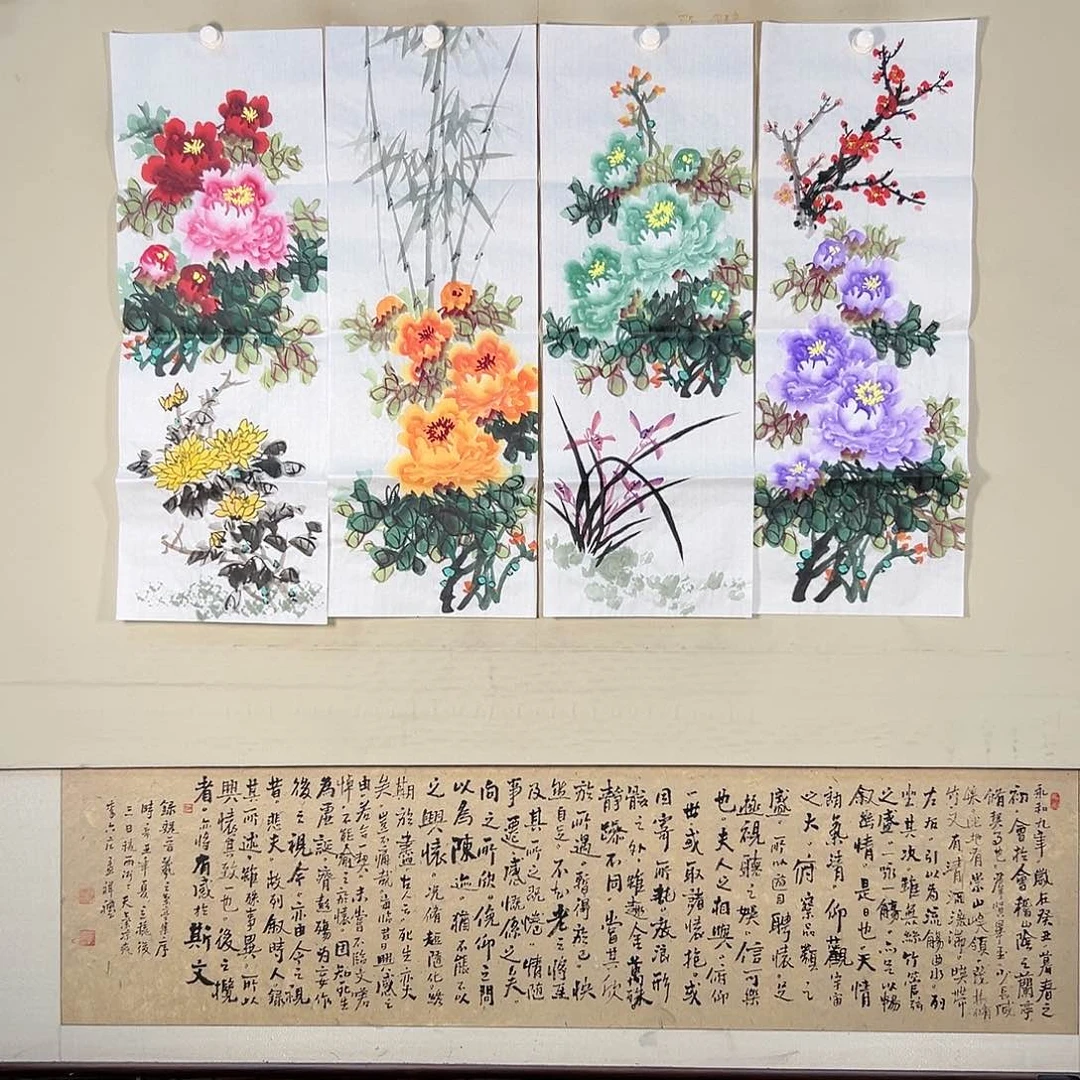 永和九年歲在癸丑暮春之
初會於會稽山陰之蘭亭
脩禊事也群賢畢至少長咸
集此地有崇山峻領茂林脩
竹又有清流激湍映帶
左右引以為流觴曲水列
坐其次雖無絲竹管弦
之盛一觴一詠亦足以暢
叙幽情是日也天情
朗氣清仰觀宇宙
之大俯察品類之
盛所以遊目騁懷足
極視聽之娛信可樂
也夫人之相與俯仰
一世或取諸懷抱或
因寄所託放浪形
骸之外雖趣舍萬殊
靜躁不同當其欣
於所遇暫得於己快
然自足不知老之將至
及其所之既惓情隨
事遷感慨係之矣
向之所欣俛仰之間
以為陳迹猶不能不以
之興懷況脩短隨化終
期於盡古人云死生亦大
矣豈不痛哉每昔興感之
由若合一契未嘗不臨文嗟
悼不能喻之於懷固知死生
為虛誕齊彭殤為妄作
後之視今亦由今之視
昔悲夫故列叙時人錄
其所述雖殊事異所以
興懷其致一也後之攬
者亦將有感於斯文
羲之蘭亭集序
三日